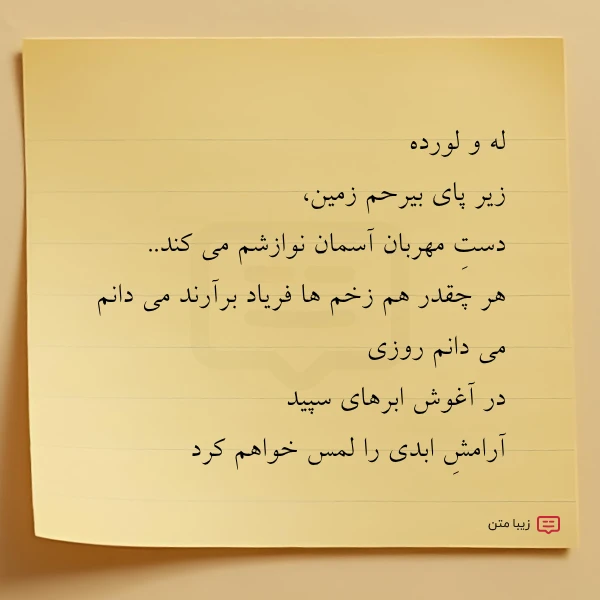 له و لورده
زیر پای بیرحم زمین،
دستِ مهربان آسمان نوازشم می کند..
هر چقدر هم زخم ها فریاد برآرند می دانم
می دانم روزی
در آغوش ابرهای سپید
آرامشِ ابدی را لمس خواهم کرد
زیبا متن